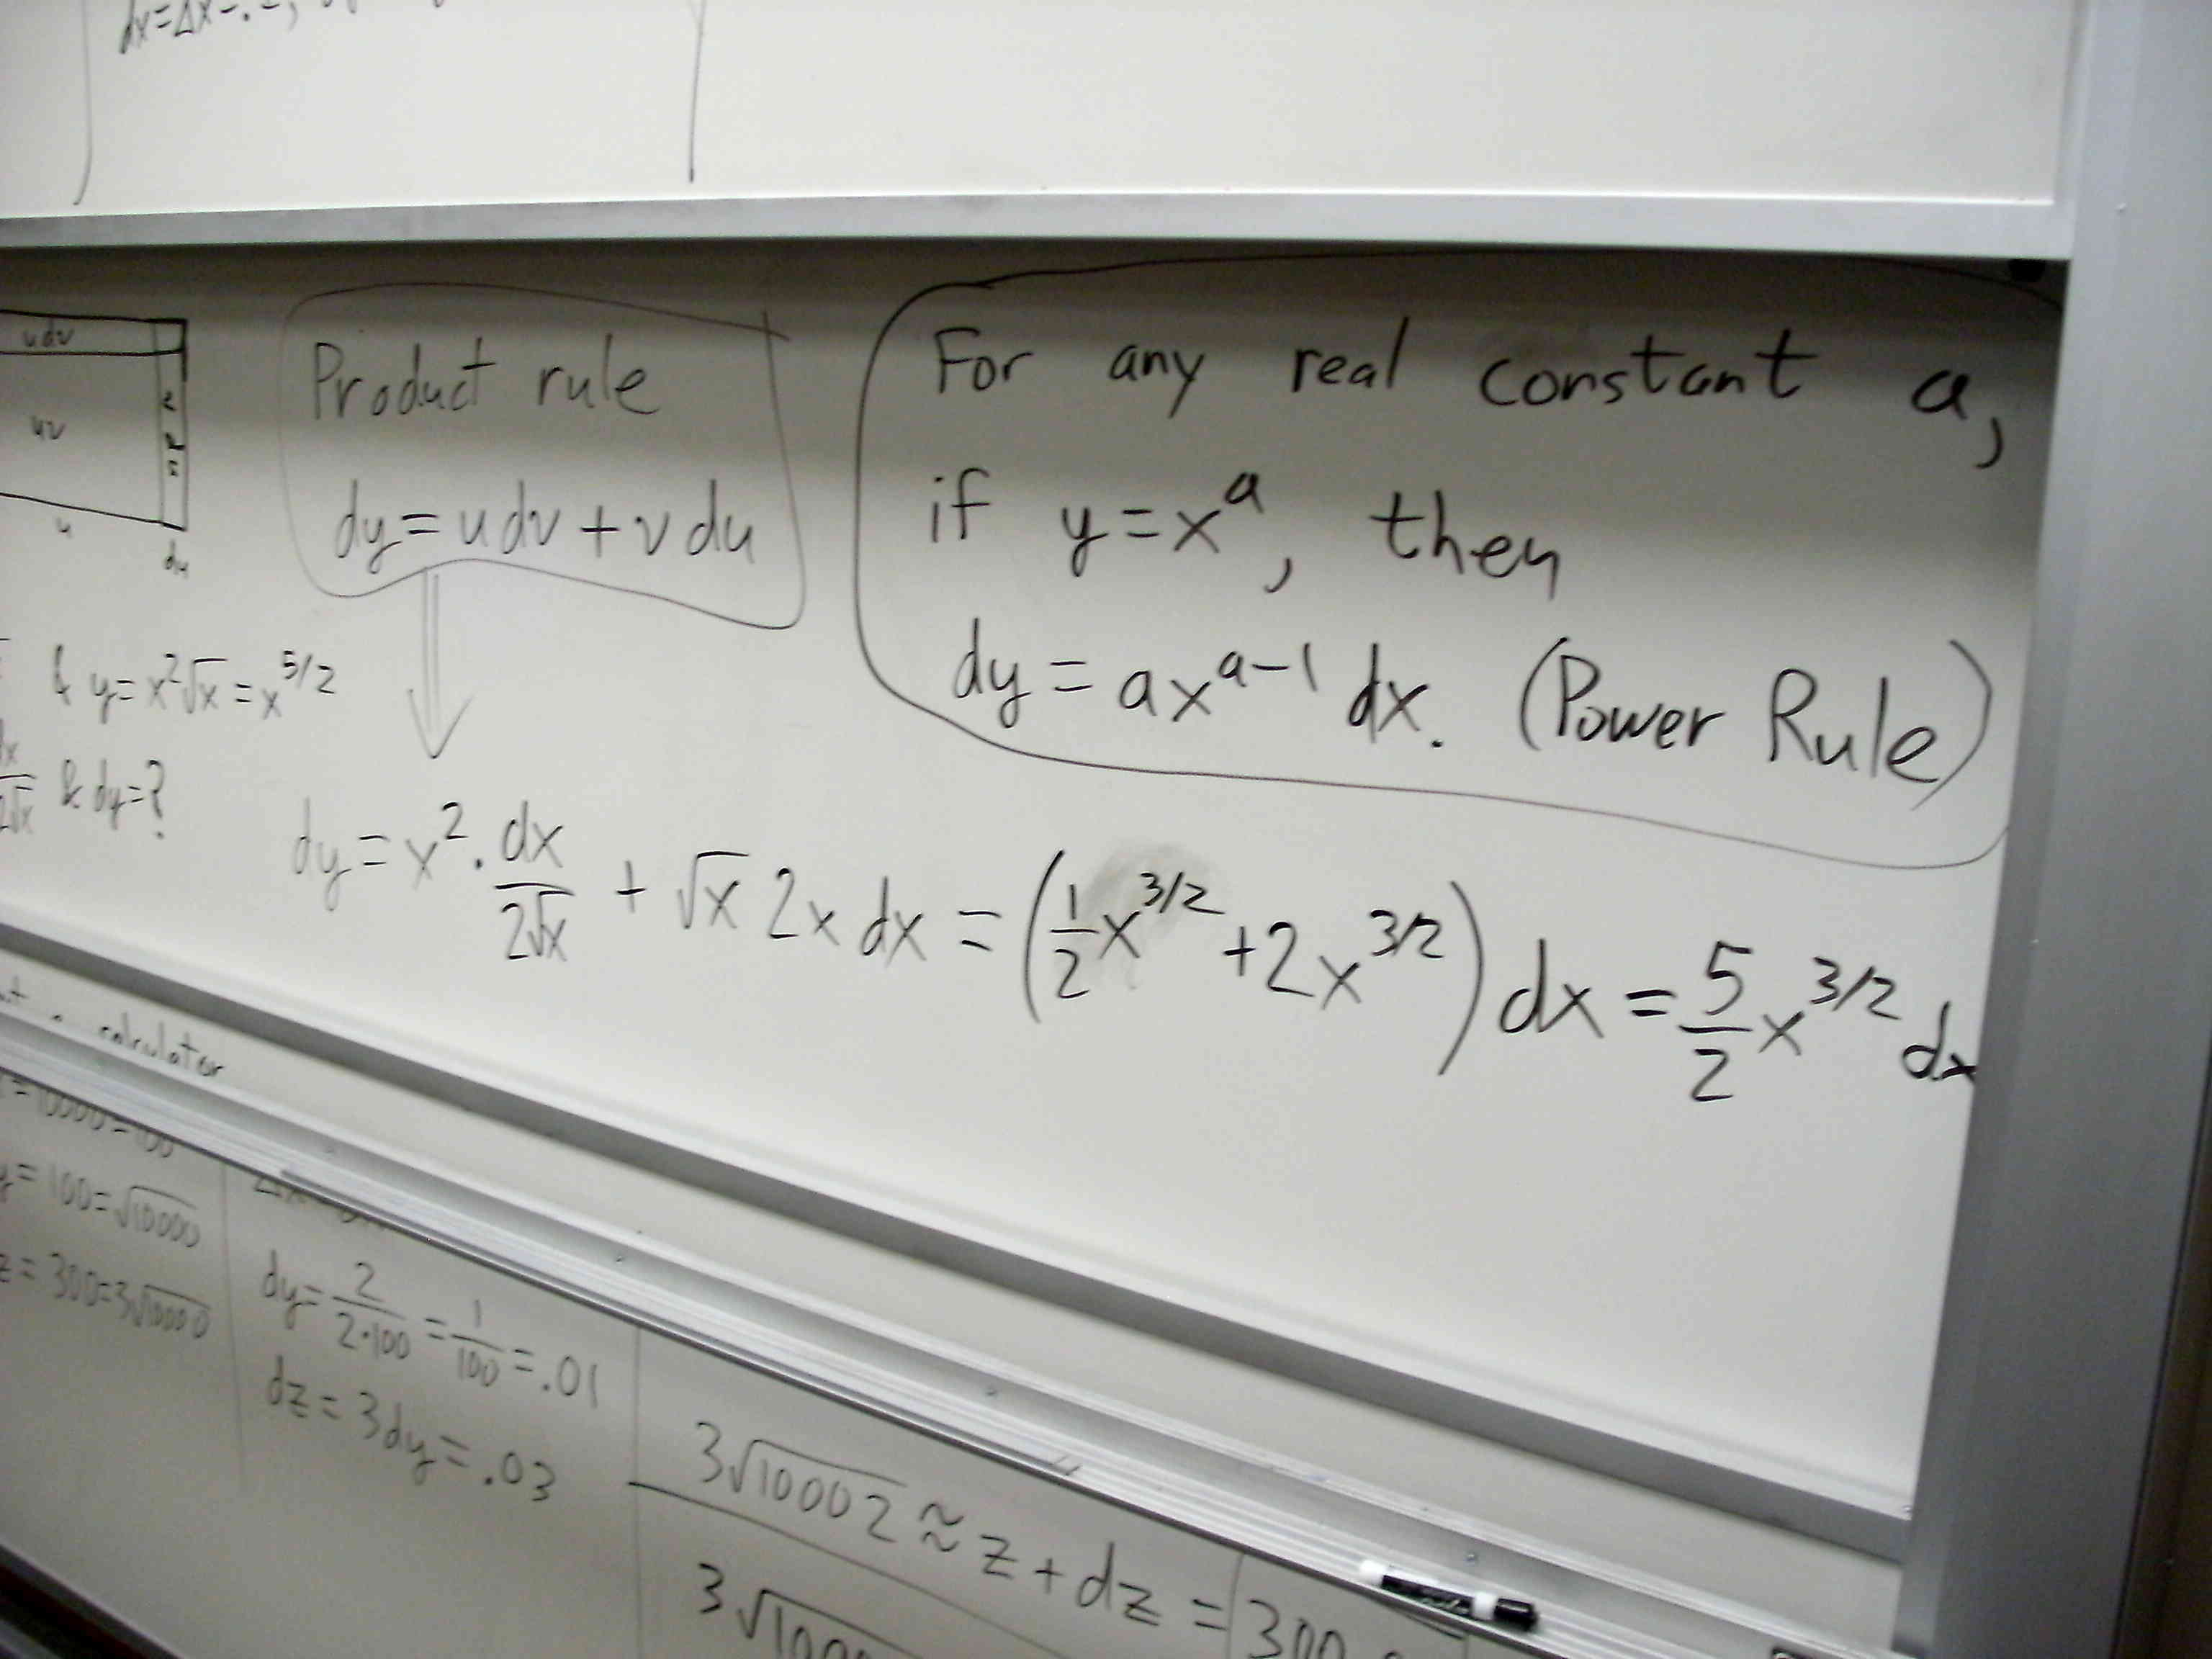 dx=Δx=.
udv
uv
u
du
Product rule
dy=udv+vdu
For any real constant a,
if y=x^a, then
dy=ax^(a-1) dx. (Power Rule)
& y=x^2√x=x^(5/2)
2√x & dy=?
dy=x^2·dx/(2√x) + √x 2x dx = (1/2 x^(3/2) +2x^(3/2)) dx = 5/2 x^(3/2) dx
calculator
=10000=100
y=100=√10000
z=300=3√10000
dy=2/(2·100)=1/100=.01
dz=3dy=.03
3√10002≈z+dz=300
3√100